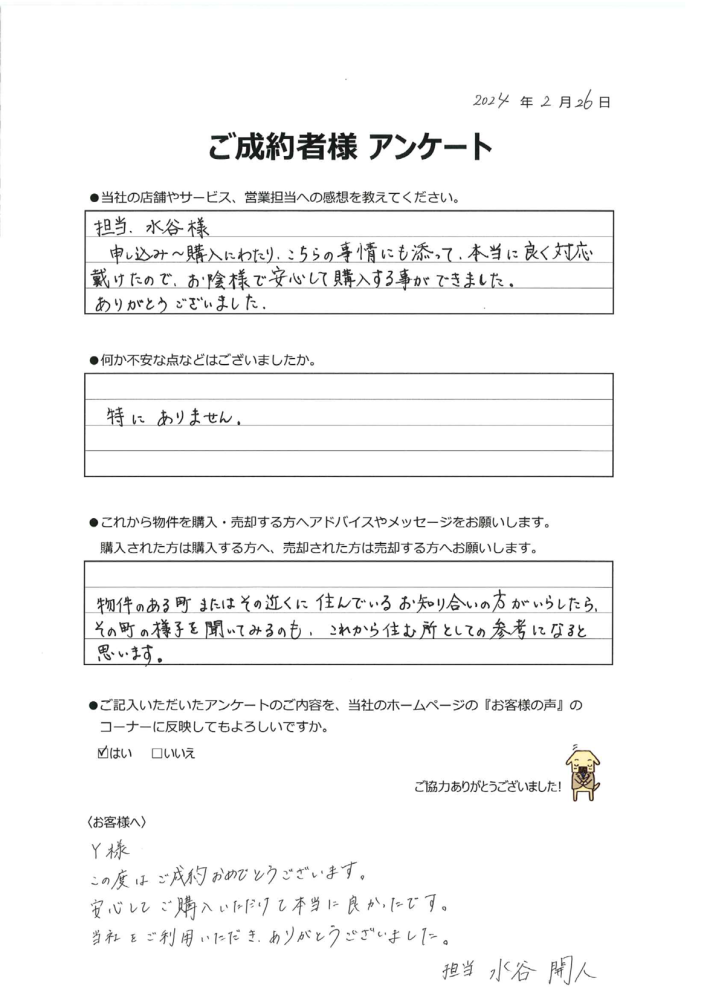 2024 年 2 月 26 日
ご成約者様 アンケート
●当社の店舗やサービス、営業担当への感想を教えてください。
担当. 水谷様
申し込み～購入にわたり、こちらの事情にも添って、本当に良く対応
戴けたので、お陰様で安心して購入する事ができました。
ありがとうございました.
●何か不安な点などはございましたか。
特に ありません。
●これから物件を購入・売却する方へアドバイスやメッセージをお願いします。
購入された方は購入する方へ、売却された方は売却する方へお願いします。
物件のある町 またはその近くに 住んでいる お知り合いの方がいらしたら、
その町の様子を聞いてみるのも、これから住む所としての参考になると
思います。
●ご記入いただいたアンケートのご内容を、当社のホームページの『お客様の声』の
コーナーに反映してもよろしいですか。
☑はい □いいえ
ご協力ありがとうございました!
〈お客様へ〉
Y様
この度は ご成約おめでとうございます。
安心して ご購入いただけて本当に良かったです。
当社をご利用いただき、ありがとうございました。
担当 水谷 開人